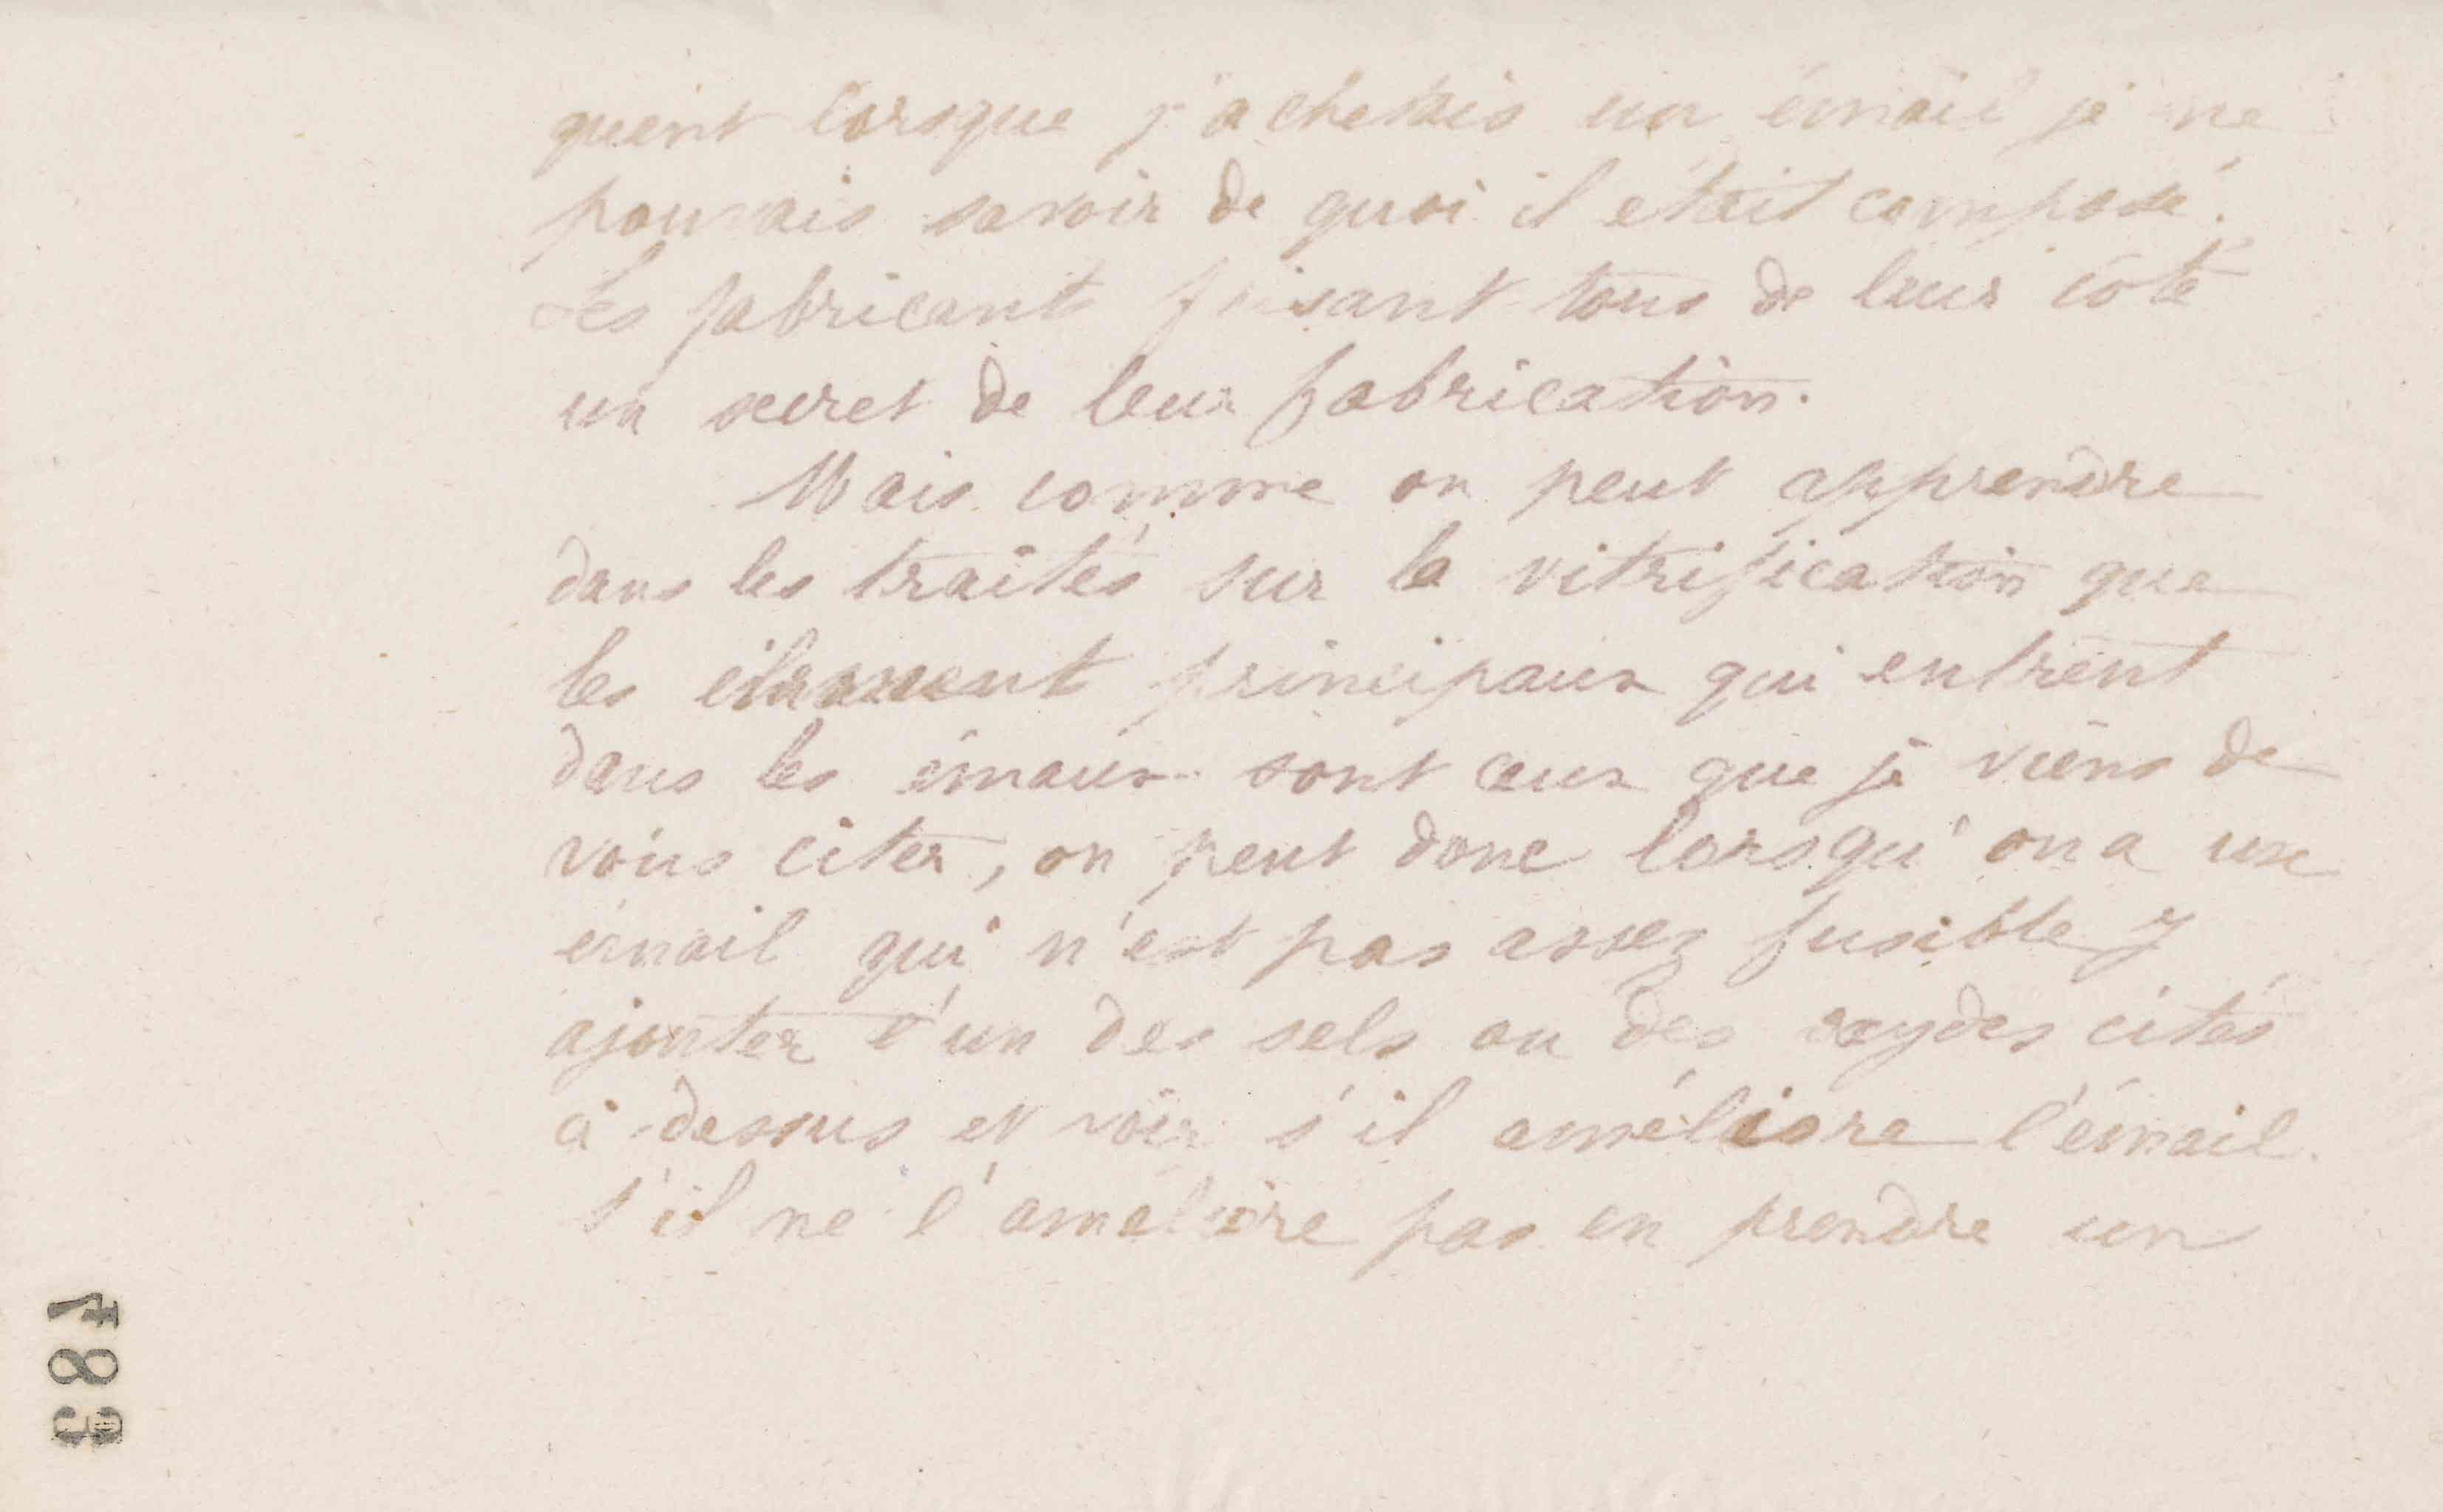 quent lorsque j'achetais un émail je ne
pouvais savoir de quoi il était composé.
Les fabricants faisant tous de leur côté
un secret de leur fabrication.
Mais comme on peut apprendre
dans les traités sur la vitrification que
les élément principaux qui entrent
dans les émaux sont ceux que je viens de
vous citer, on peut donc lorsqu'on a un
émail qui n'est pas assez fusible y
ajouter l'un des sels ou des oxydes cités
ci-dessus et voir s'il améliore l'émail.
s'il ne l'améliore pas en prendre un
183